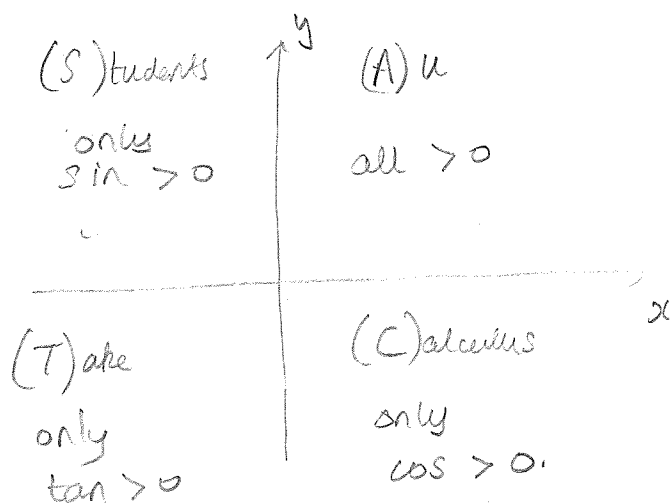 y
(S)tudents
only
sin > 0
(A)ll
all > 0
x
(T)ake
only
tan > 0
(C)alculus
only
cos > 0.